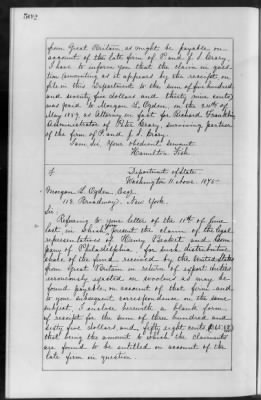 502
from Great Britain as might be payable on
account of the late firm of P. and J. S. Crary,
I have to inform you that the claim in ques-
tion, amounting as it appears by the receipt, on
file in this Department to the sum of five hundred
and seventy five dollars and thirty nine cents,
was paid to Morgan L. Ogden, on the 24th of
May 1859, as Attorney in fact for Richard Franklin
Administrator of Peter Crary, surviving partner
of the firm of P. and J. S. Crary.
I am Sir, Your obedient servant
Hamilton Fish
Department of State
Washington 11 June 1875
Morgan L. Ogden Esqr
113 Broadway, New York.
Sir:
Referring to your letter of the 11th of June
last, in which you present the claim of the legal
representatives of Henry Beckett and Com-
pany of Philadelphia, for such distributive
share of the fund received by the United States
from Great Britain in return of export duties
erroneously exacted on woolens as may be
found payable, on account of that firm and
to your subsequent correspondence on the same
subject, I enclose herewith a blank form
of receipt for the sum of three hundred and
sixty five dollars and fifty eight cents ($365.58)
that being the amount to which the claimants
are found to be entitled on account of the
late firm in question.